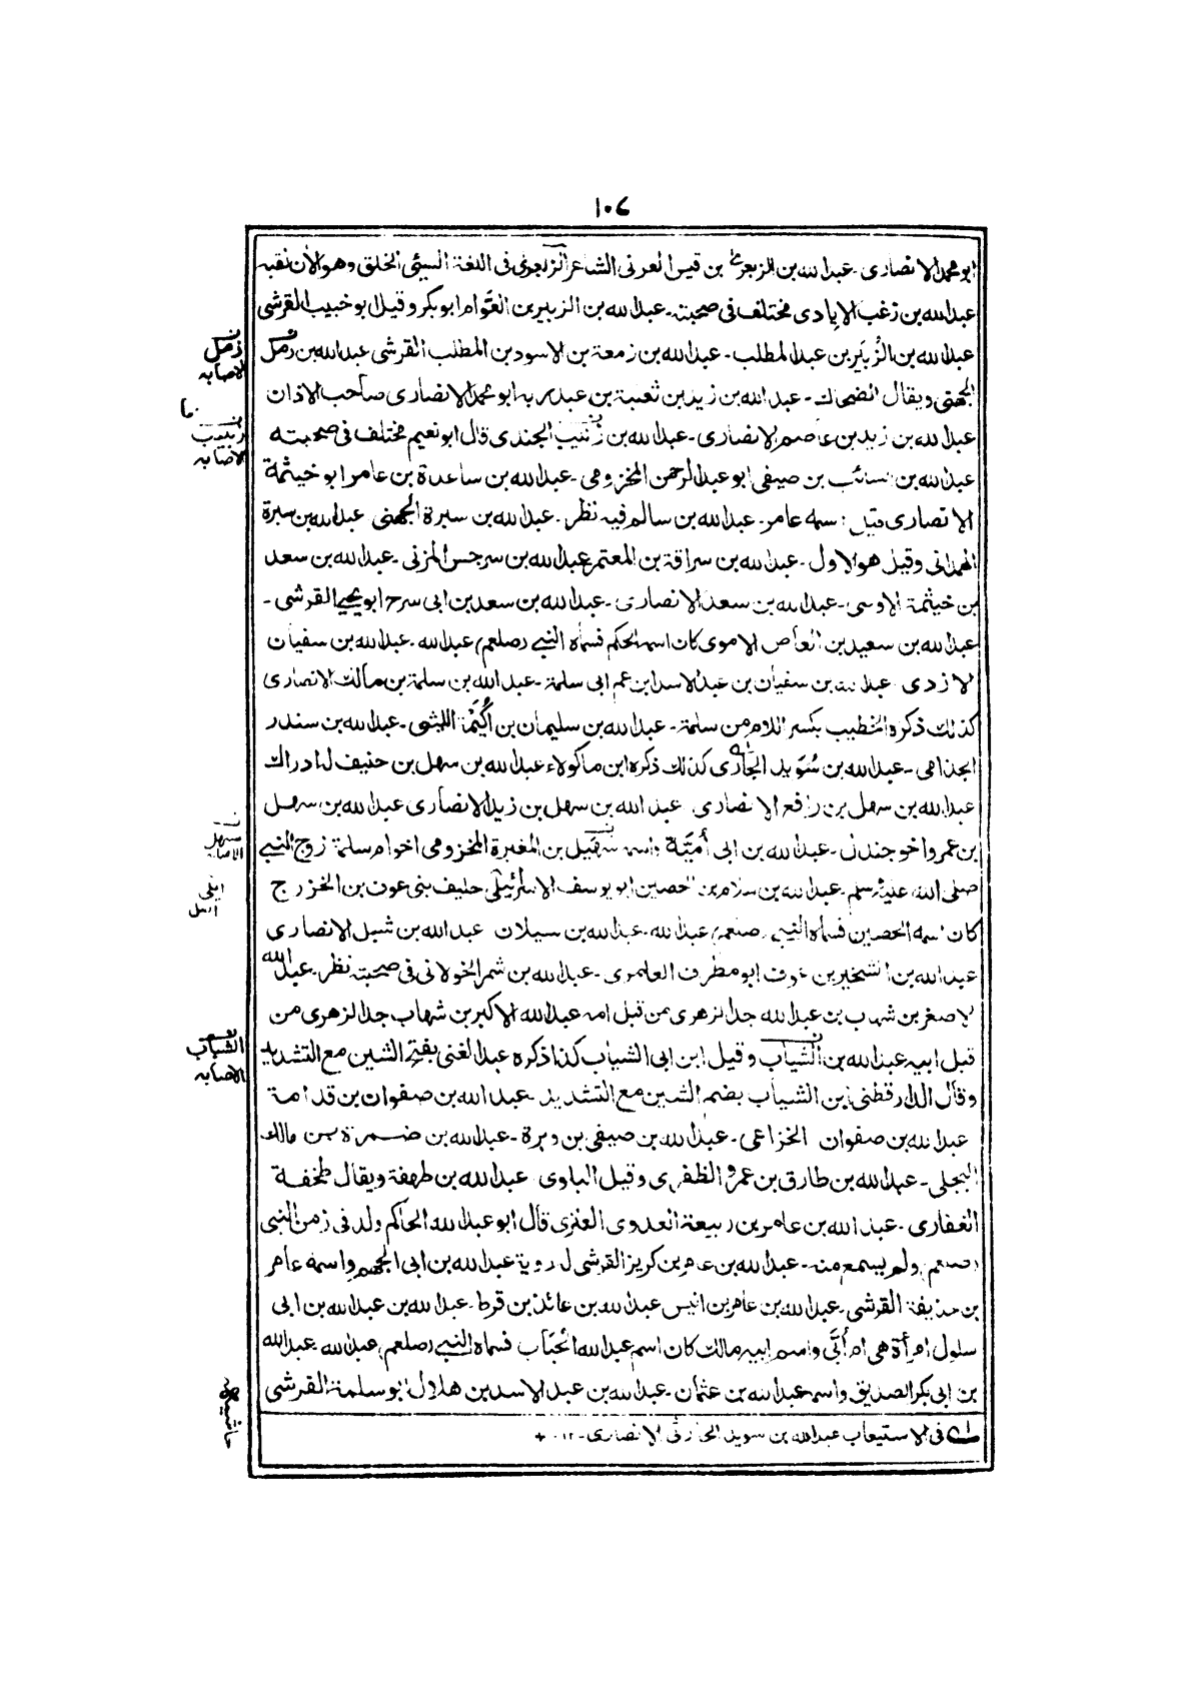 ١٠٤
ابو محمد الانصارى ـ عبدالله بن الزبعرى بن قيس العرنى الشاعر الزبعرى فى اللغة السيئ الخلق وهو الآن نقبه
عبدالله بن زغب الايادى مختلف فى صحبته ـ عبدالله بن الزبير بن العوَّام ابوبكر وقيل ابو خبيب القرشى
عبدالله بن الزُّبَير بن عبدالمطلب ـ عبدالله بن زمعة بن الاسود بن المطلب القرشى عبدالله بن زمل
الجهنى ويقال الضحاك ـ عبدالله بن زيد بن ثعلبة بن عبدربه ابو محمد الانصارى صاحب الاذان
عبدالله بن زيد بن عاصم الانصارى ـ عبدالله بن زُنيب الجندى قال ابو نعيم مختلف فى صحبته
عبدالله بن السائب بن صيفى ابو عبدالرحمن المخزومى ـ عبدالله بن ساعدة بن عامر ابو خيثمة
الانصارى قيل اسمه عامر ـ عبدالله بن سالم فيه نظر ـ عبدالله بن سبرة الجهنى عبدالله بن سبرة
الهمدانى وقيل هو الاول ـ عبدالله بن سراقة بن المعتمر عبدالله بن سرجس المزنى ـ عبدالله بن سعد
بن خيثمة الاوسى ـ عبدالله بن سعد الانصارى ـ عبدالله بن سعد بن ابى سرح ابو يحيى القرشى ـ
عبدالله بن سعيد بن العاص الاموى كان اسمه الحكم فسماه النبى (صلعم) عبدالله ـ عبدالله بن سفيان
الازدى عبدالله بن سفيان بن عبدالاسد ابن عم ابى سلمة ـ عبدالله بن سلمة بن مالك الانصارى
كذلك ذكره الخطيب بكسر اللام من سلمة ـ عبدالله بن سليمان بن اُكَيْمَة الليثى ـ عبدالله بن سندر
الجذامى ـ عبدالله بن سُوَيد الجارى كذلك ذكره ابن ماكولاء عبدالله بن سهل بن حنيف له ادراك
عبدالله بن سهل بن رافع الانصارى عبدالله بن سهل بن زيد الانصارى عبدالله بن سهل
بن عمرو اخو جندل ـ عبدالله بن ابى أميَّة واسمه سهيل بن المغيرة المخزومى اخو ام سلمة زوج النبى
صلى الله عليه وسلم ـ عبدالله بن سلام بن الحصين ابو يوسف الاسرائيلى حليف بنى عوف بن الخزرج
كان اسمه الحصين فسماه النبى (صلعم) عبدالله ـ عبدالله بن سيلان عبدالله بن شبل الانصارى
عبدالله بن الشخير بن عوف ابو مطرف العامرى ـ عبدالله بن شمر الخولانى فى صحبته نظر ـ عبدالله
الاصغر بن شهاب بن عبدالله جد الزهرى من قبل امه عبدالله الاكبر بن شهاب جد الزهرى من
قبل ابيه عبدالله بن الشياب وقيل ابن ابى الشياب كذا ذكره عبدالغنى بفتح الشين مع التشديد
وقال الدارقطنى ابن الشياب بضم الشين مع التشديد ـ عبدالله بن صفوان بن قدامة
عبدالله بن صفوان الخزاعى ـ عبدالله بن صيفى بن وبرة ـ عبدالله بن ضمرة بن مالك
البجلى ـ عبدالله بن طارق بن عمرو الظفرى وقيل البلوى عبدالله بن طهفة ويقال طخفة
الغفارى ـ عبدالله بن عامر بن ربيعة العدوى العنزى قال ابو عبدالله الحاكم ولد فى زمن النبى
(صلعم) ولم يسمع منه ـ عبدالله بن عامر بن كريز القرشى له روية عبدالله بن ابى الجهم واسمه عامر
بن حذيفة القرشى ـ عبدالله بن عامر بن انيس عبدالله بن عائذ بن قرط ـ عبدالله بن عبدالله بن ابى
سلول امرأة هى ام أبىّ واسم ابيه مالك كان اسم عبدالله الحُبَاب فسماه النبى (صلعم) عبدالله عبدالله
بن ابى بكر الصديق واسمه عبدالله بن عثمان ـ عبدالله بن عبدالاسد بن هلال ابو سلمة القرشى
فى الاستيعاب عبدالله بن سويد الحارثى الانصارى ـ ١٢
زمل
الاصابه
زبيب
الاصابه
سهل
الاصابه
الشياب
الاصابه
حاشيه